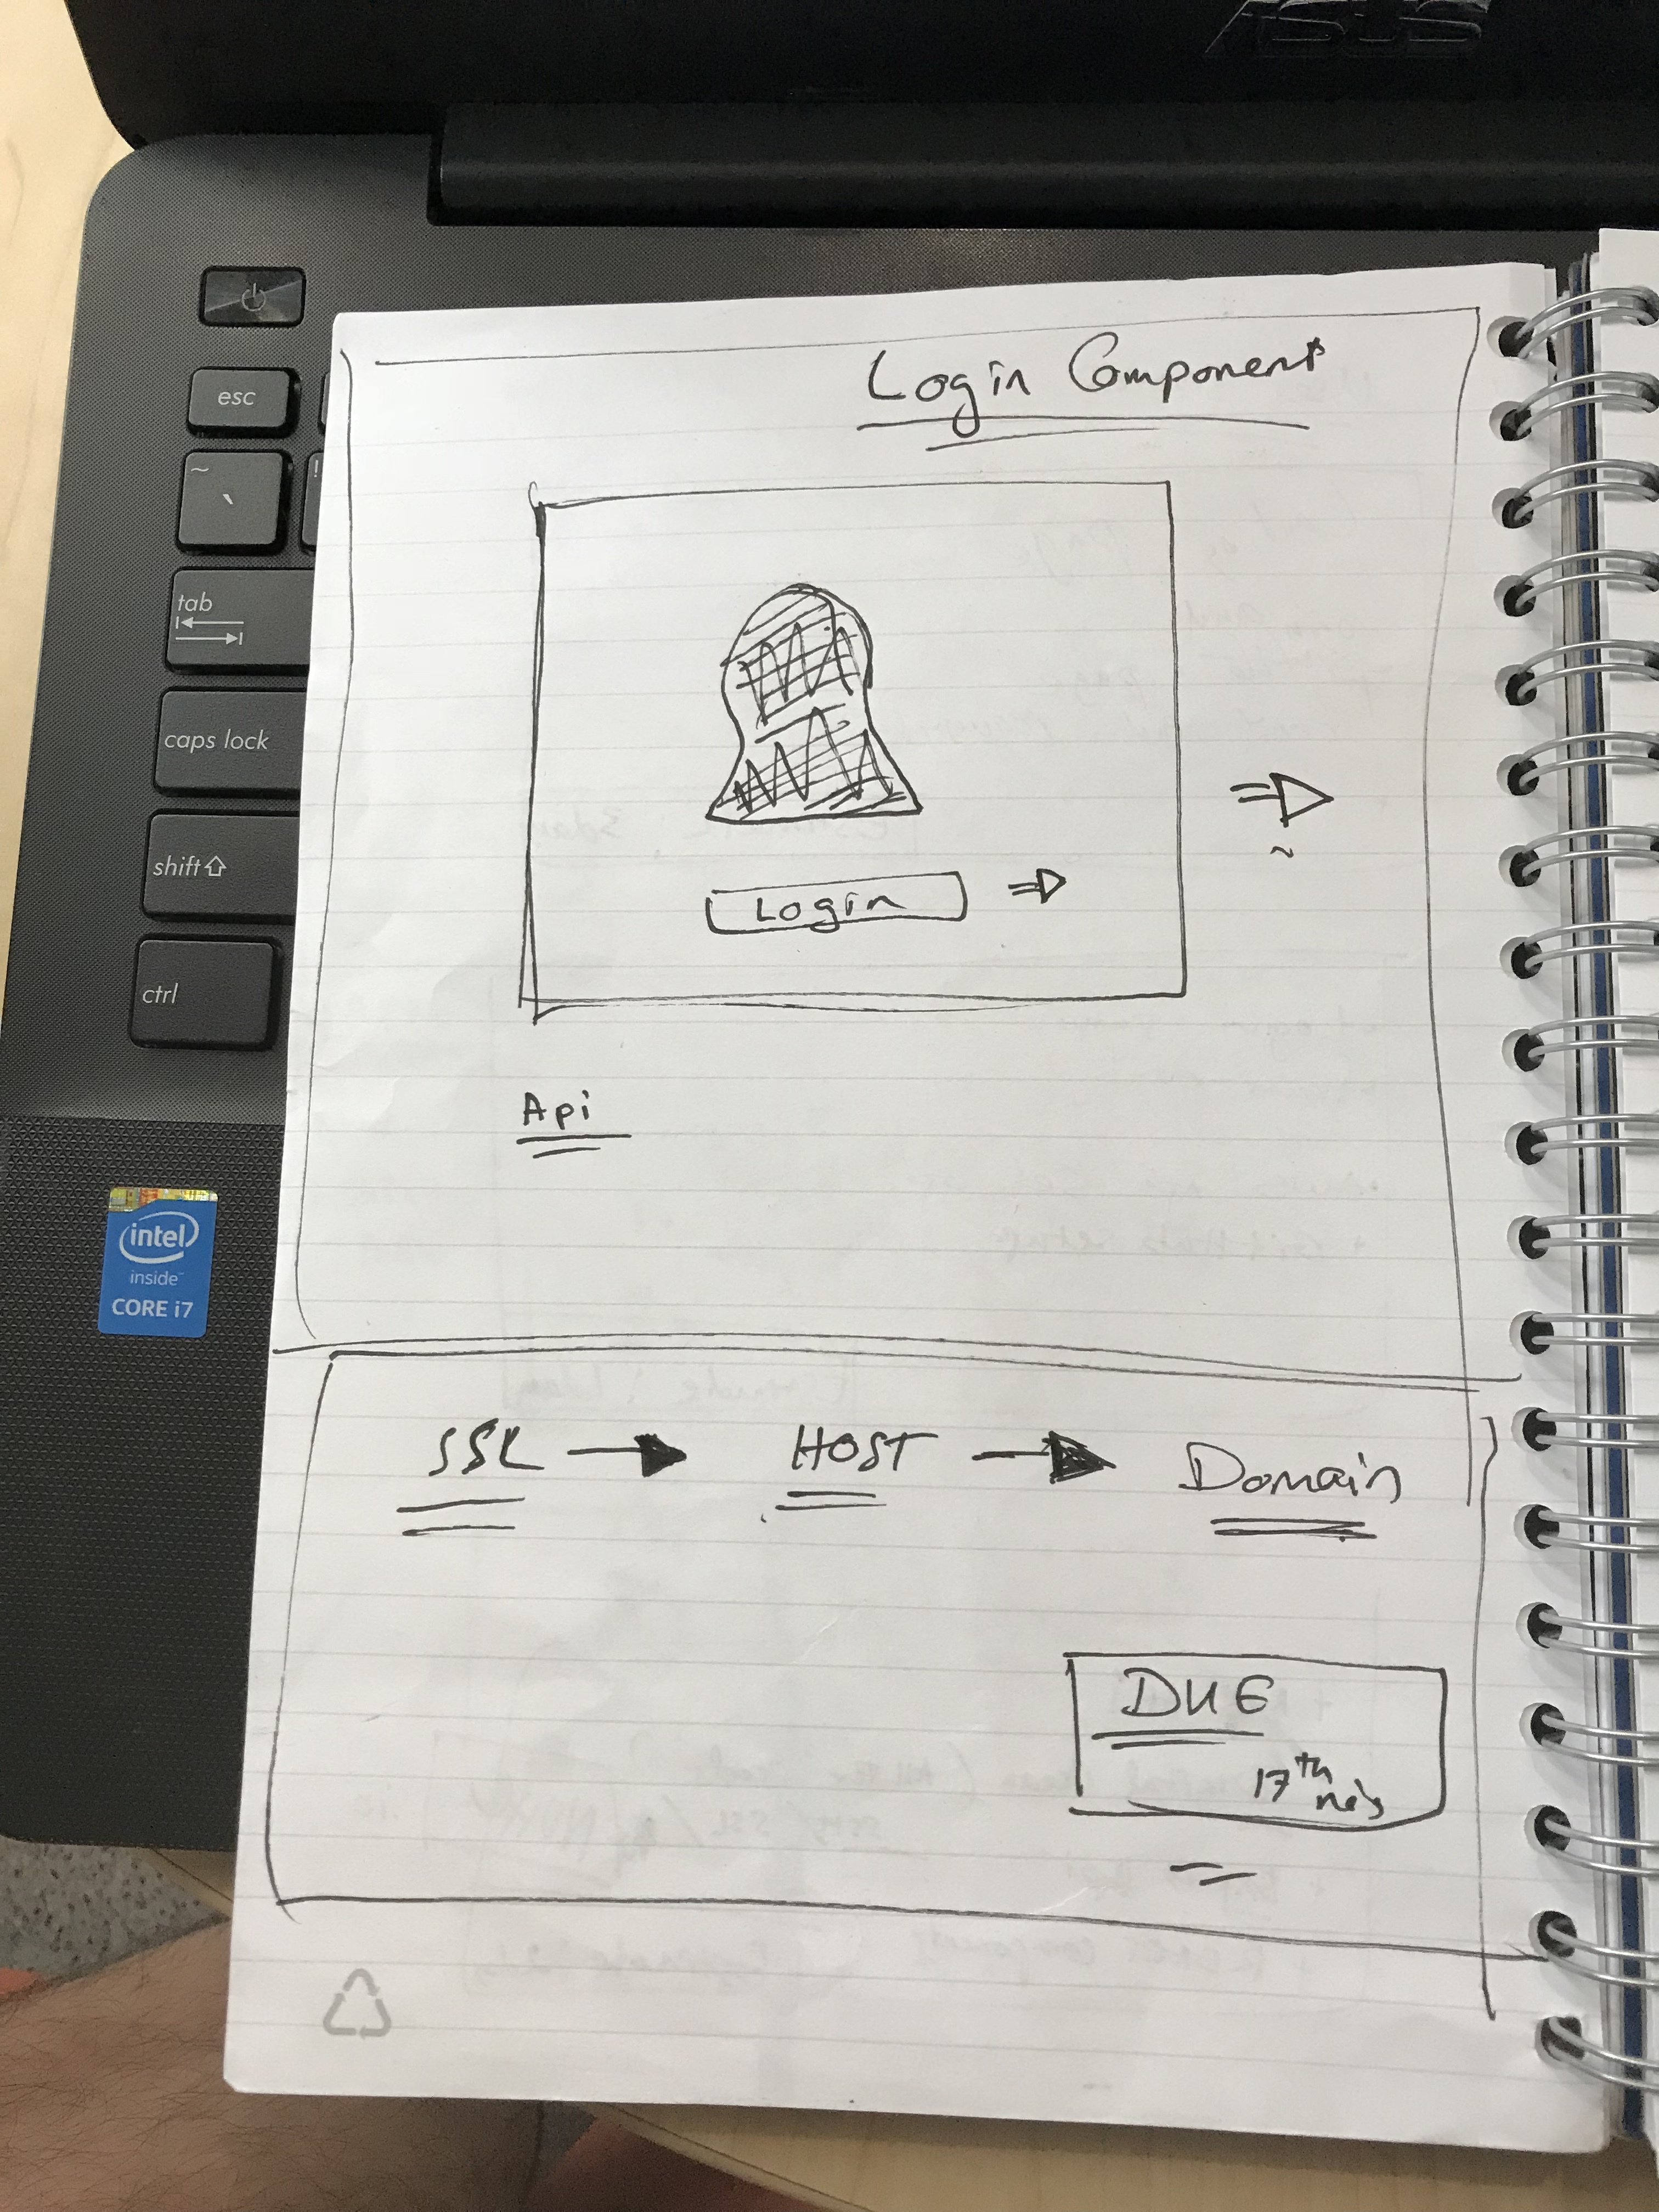 ASUS
esc
~
`
!
tab
caps lock
shift
ctrl
intel
inside™
CORE i7
Login Component
Login
Api
SSL
HOST
Domain
DUE
17th